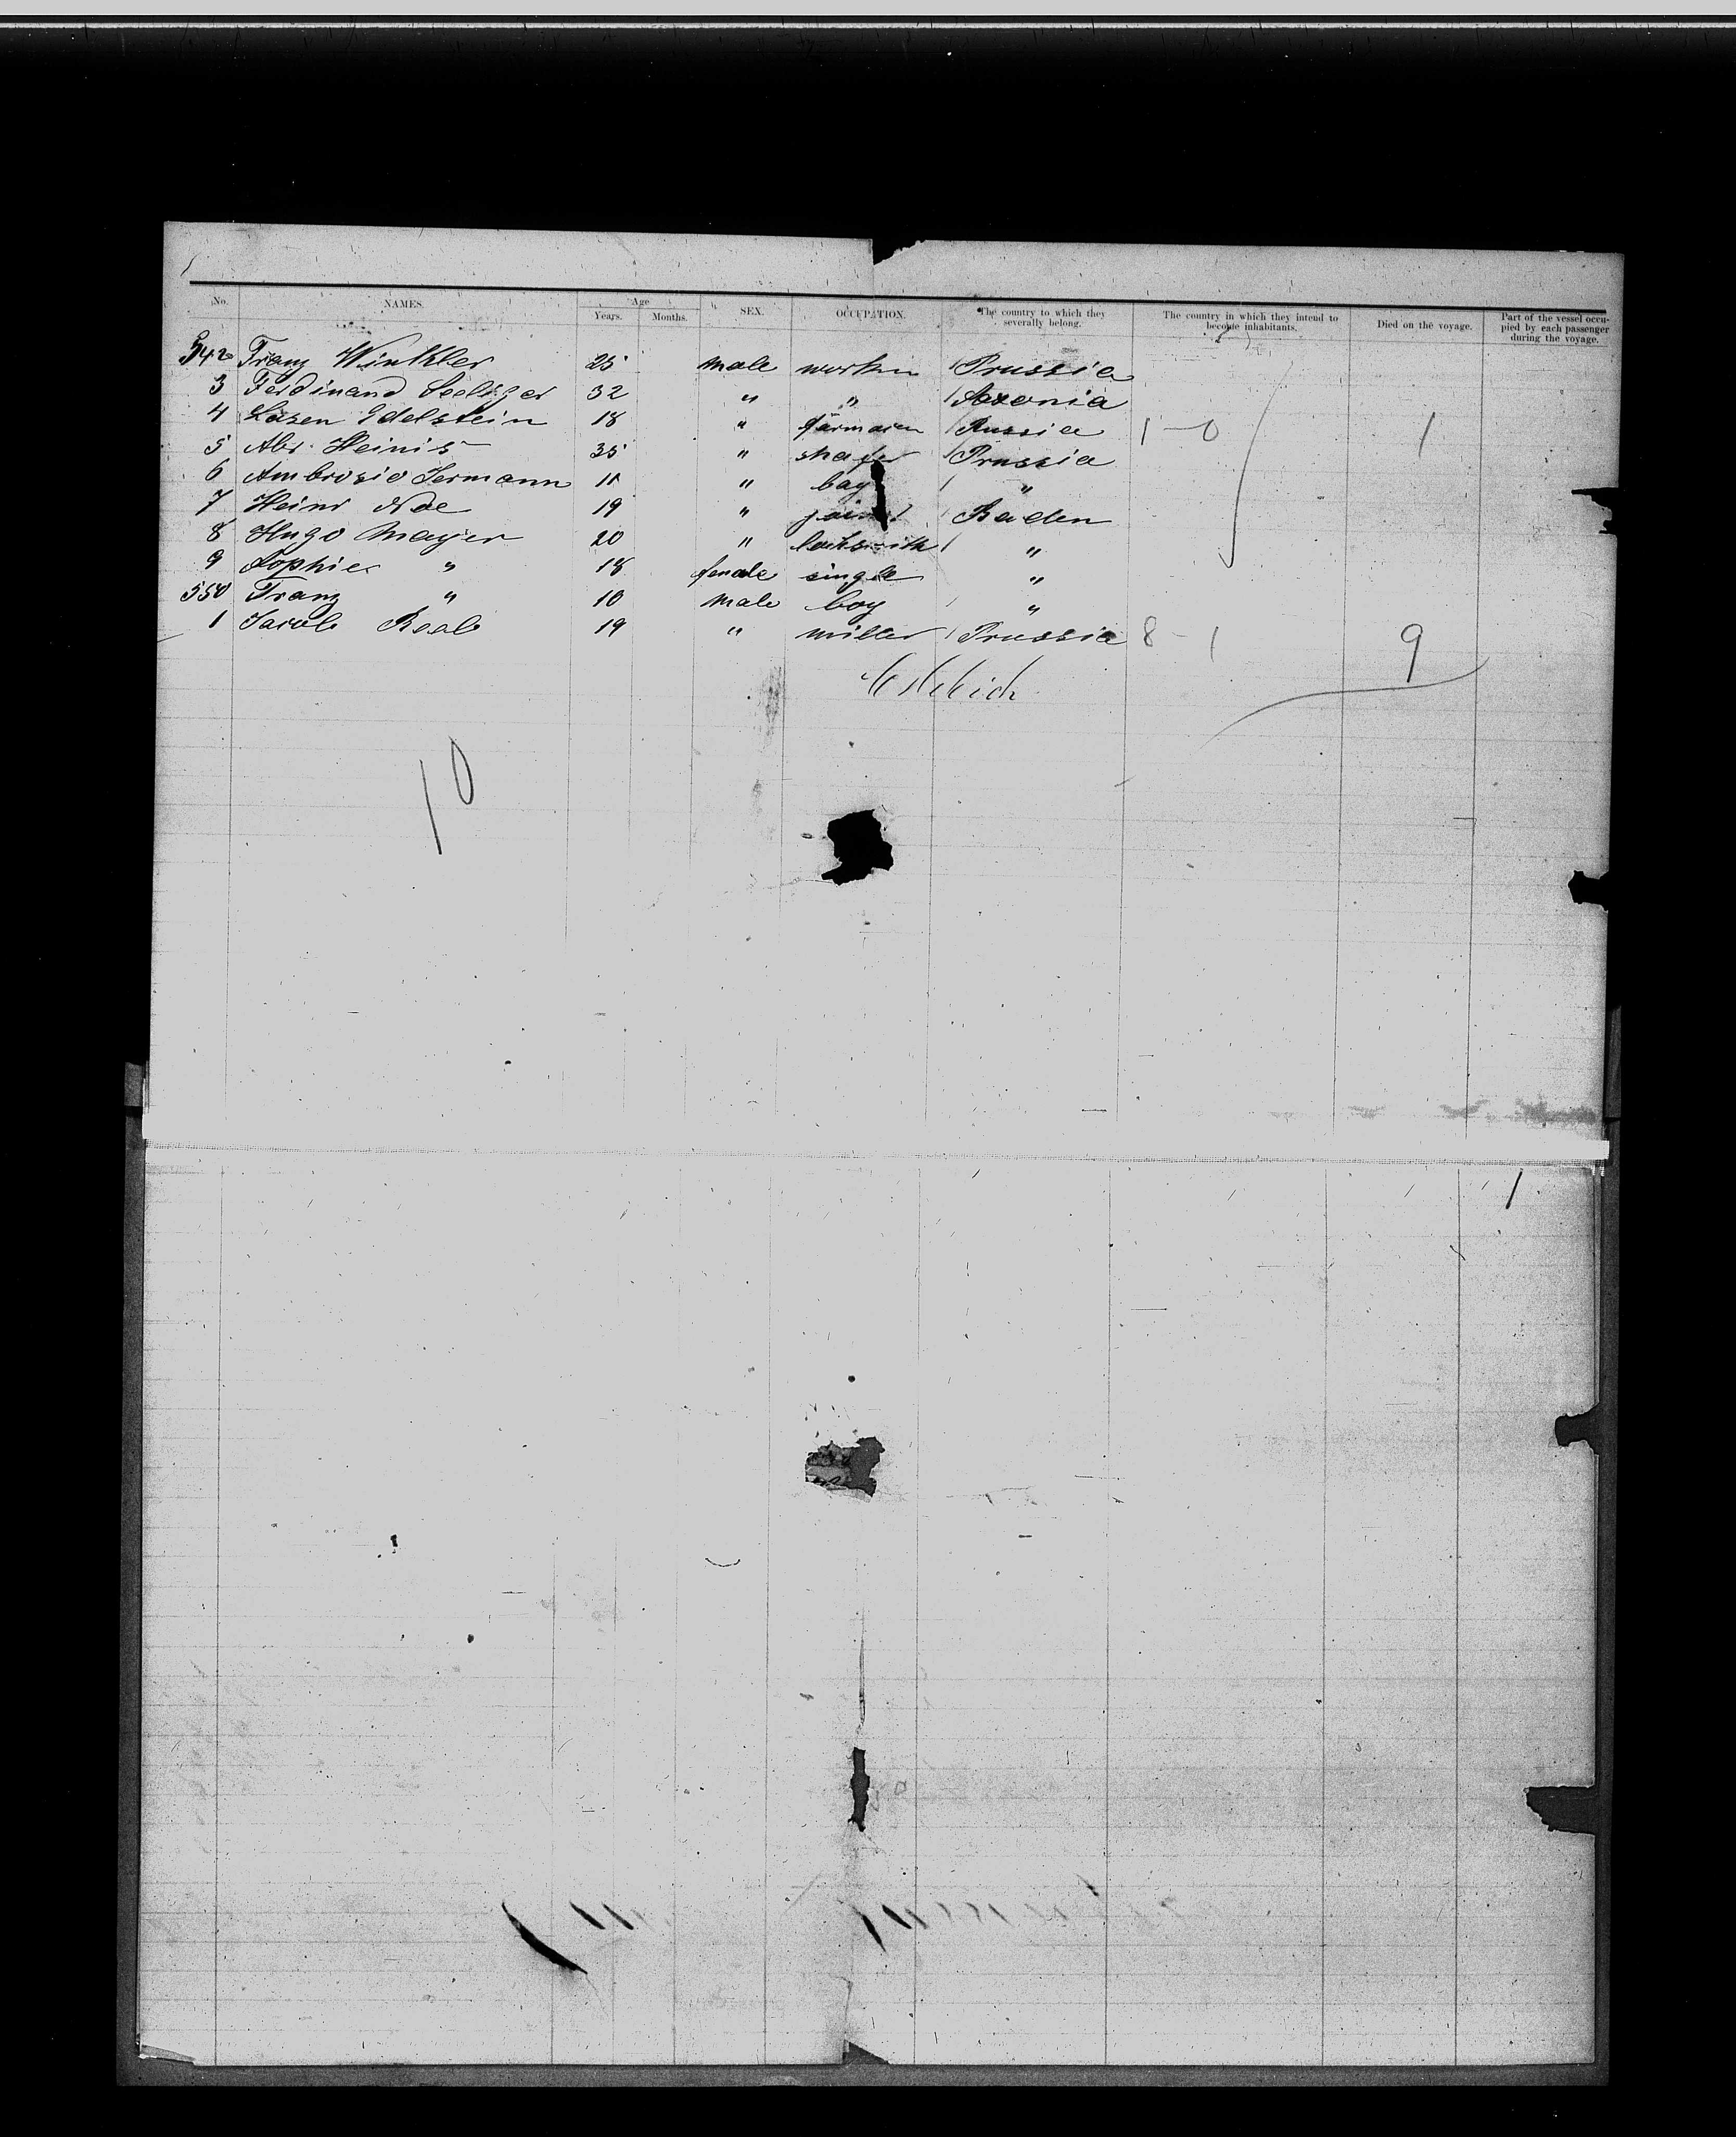 No. NAMES. Age Years. Months. SEX. OCCUPATION. The country to which they severally belong. The country in which they intend to become inhabitants. Died on the voyage. Part of the vessel occupied by each passenger during the voyage.
542 Franz Winkler 25 male workm Prussia
3 Ferdinand Seeliger 32 " " Saxonia
4 Lasen Edelstein 18 " Russia 1-0 1
5 Abr. Heinis 35 " Prussia
6 Ambrosio Jermann 11 " boy "
7 Heinr Noe 19 " Baden
8 Hugo Mayer 20 " locksmith "
9 Sophie " 18 female single "
550 Franz " 10 male boy "
1 Jacob Beal 19 " miller Prussia 8-1 9
10